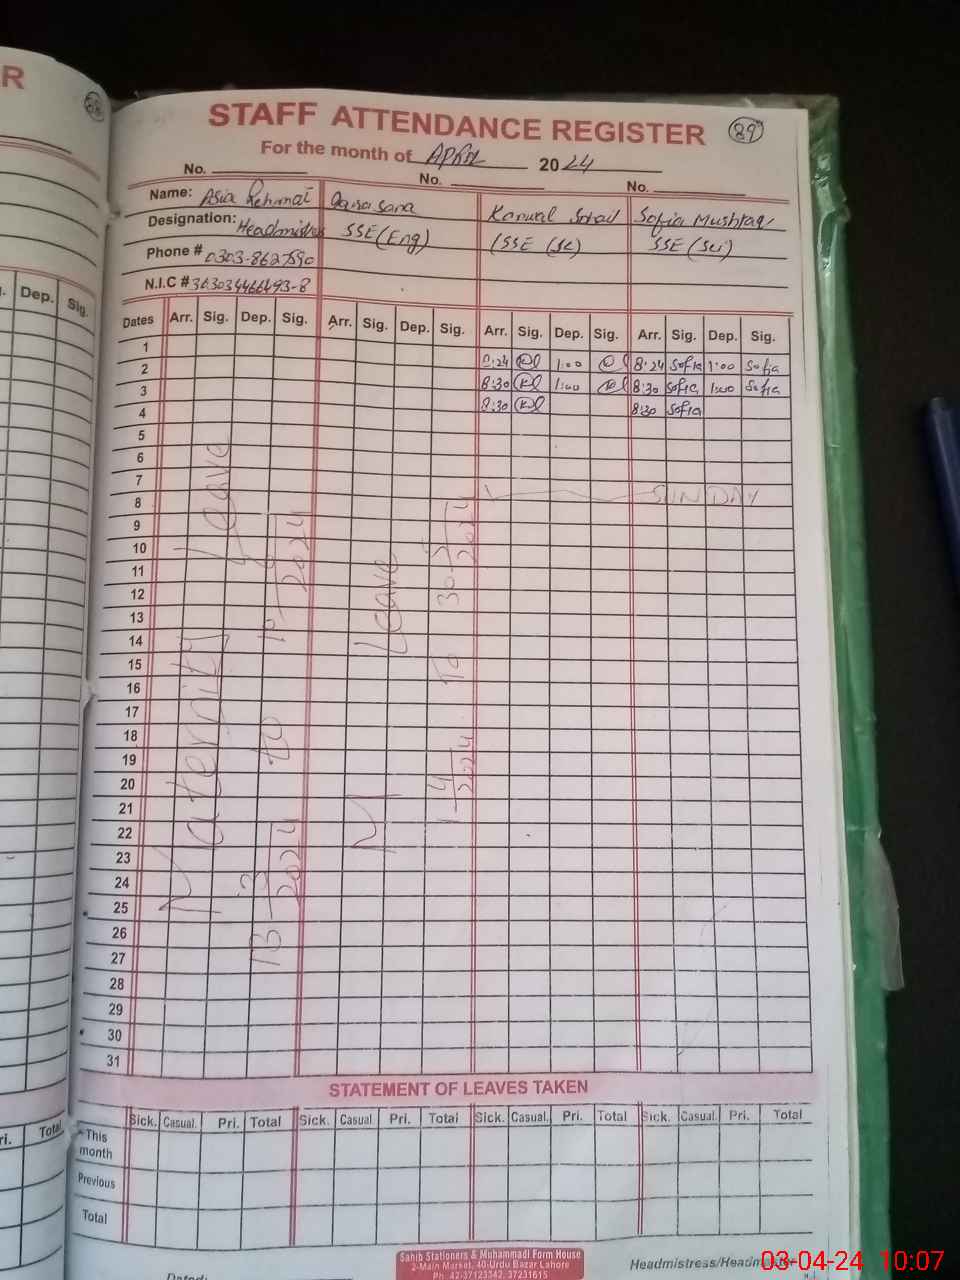 R
STAFF ATTENDANCE REGISTER 89
For the month of April 2024
No. No. No.
Name: Asia Rehmat Sana Kanwal Sohail Sofia Mushtaq
Designation: Headmistress SSE (Eng) SSE (Sc) SSE (Sci)
Phone # 0303-8627590
N.I.C #
Dep. Sig.
Dates Arr. Sig. Dep. Sig. Arr. Sig. Dep. Sig. Arr. Sig. Dep. Sig. Arr. Sig. Dep. Sig.
1
2 8:24 1:00 8:24 Sofia 1:00 Sofia
3 8:30 1:00 8:30 Sofia 1:00 Sofia
4 8:30 8:30 Sofia
5
6
7
8 SUNDAY
9
10
11
12
13
14
15
16
17
18
19
20
21
22
23
24
25
26
27
28
29
30
31
Maternity Leave
13-3-2024 to
M Leave
1-4-2024 To 30-5-2024
STATEMENT OF LEAVES TAKEN
Sick. Casual. Pri. Total Sick. Casual Pri. Total Sick. Casual. Pri. Total Sick. Casual. Pri. Total
Total
This month
Previous
Total
Sahib Stationers & Muhammadi Form House
2-Main Market, 40-Urdu Bazar Lahore
Ph. 42-37123342, 37231615
Headmistress/Headmaster
Dated:
03-04-24 10:07